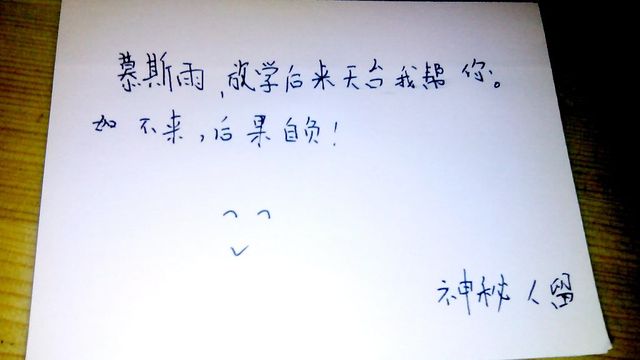 慕斯雨,放学后来天台我帮你。
如不来,后果自负!
神秘人留